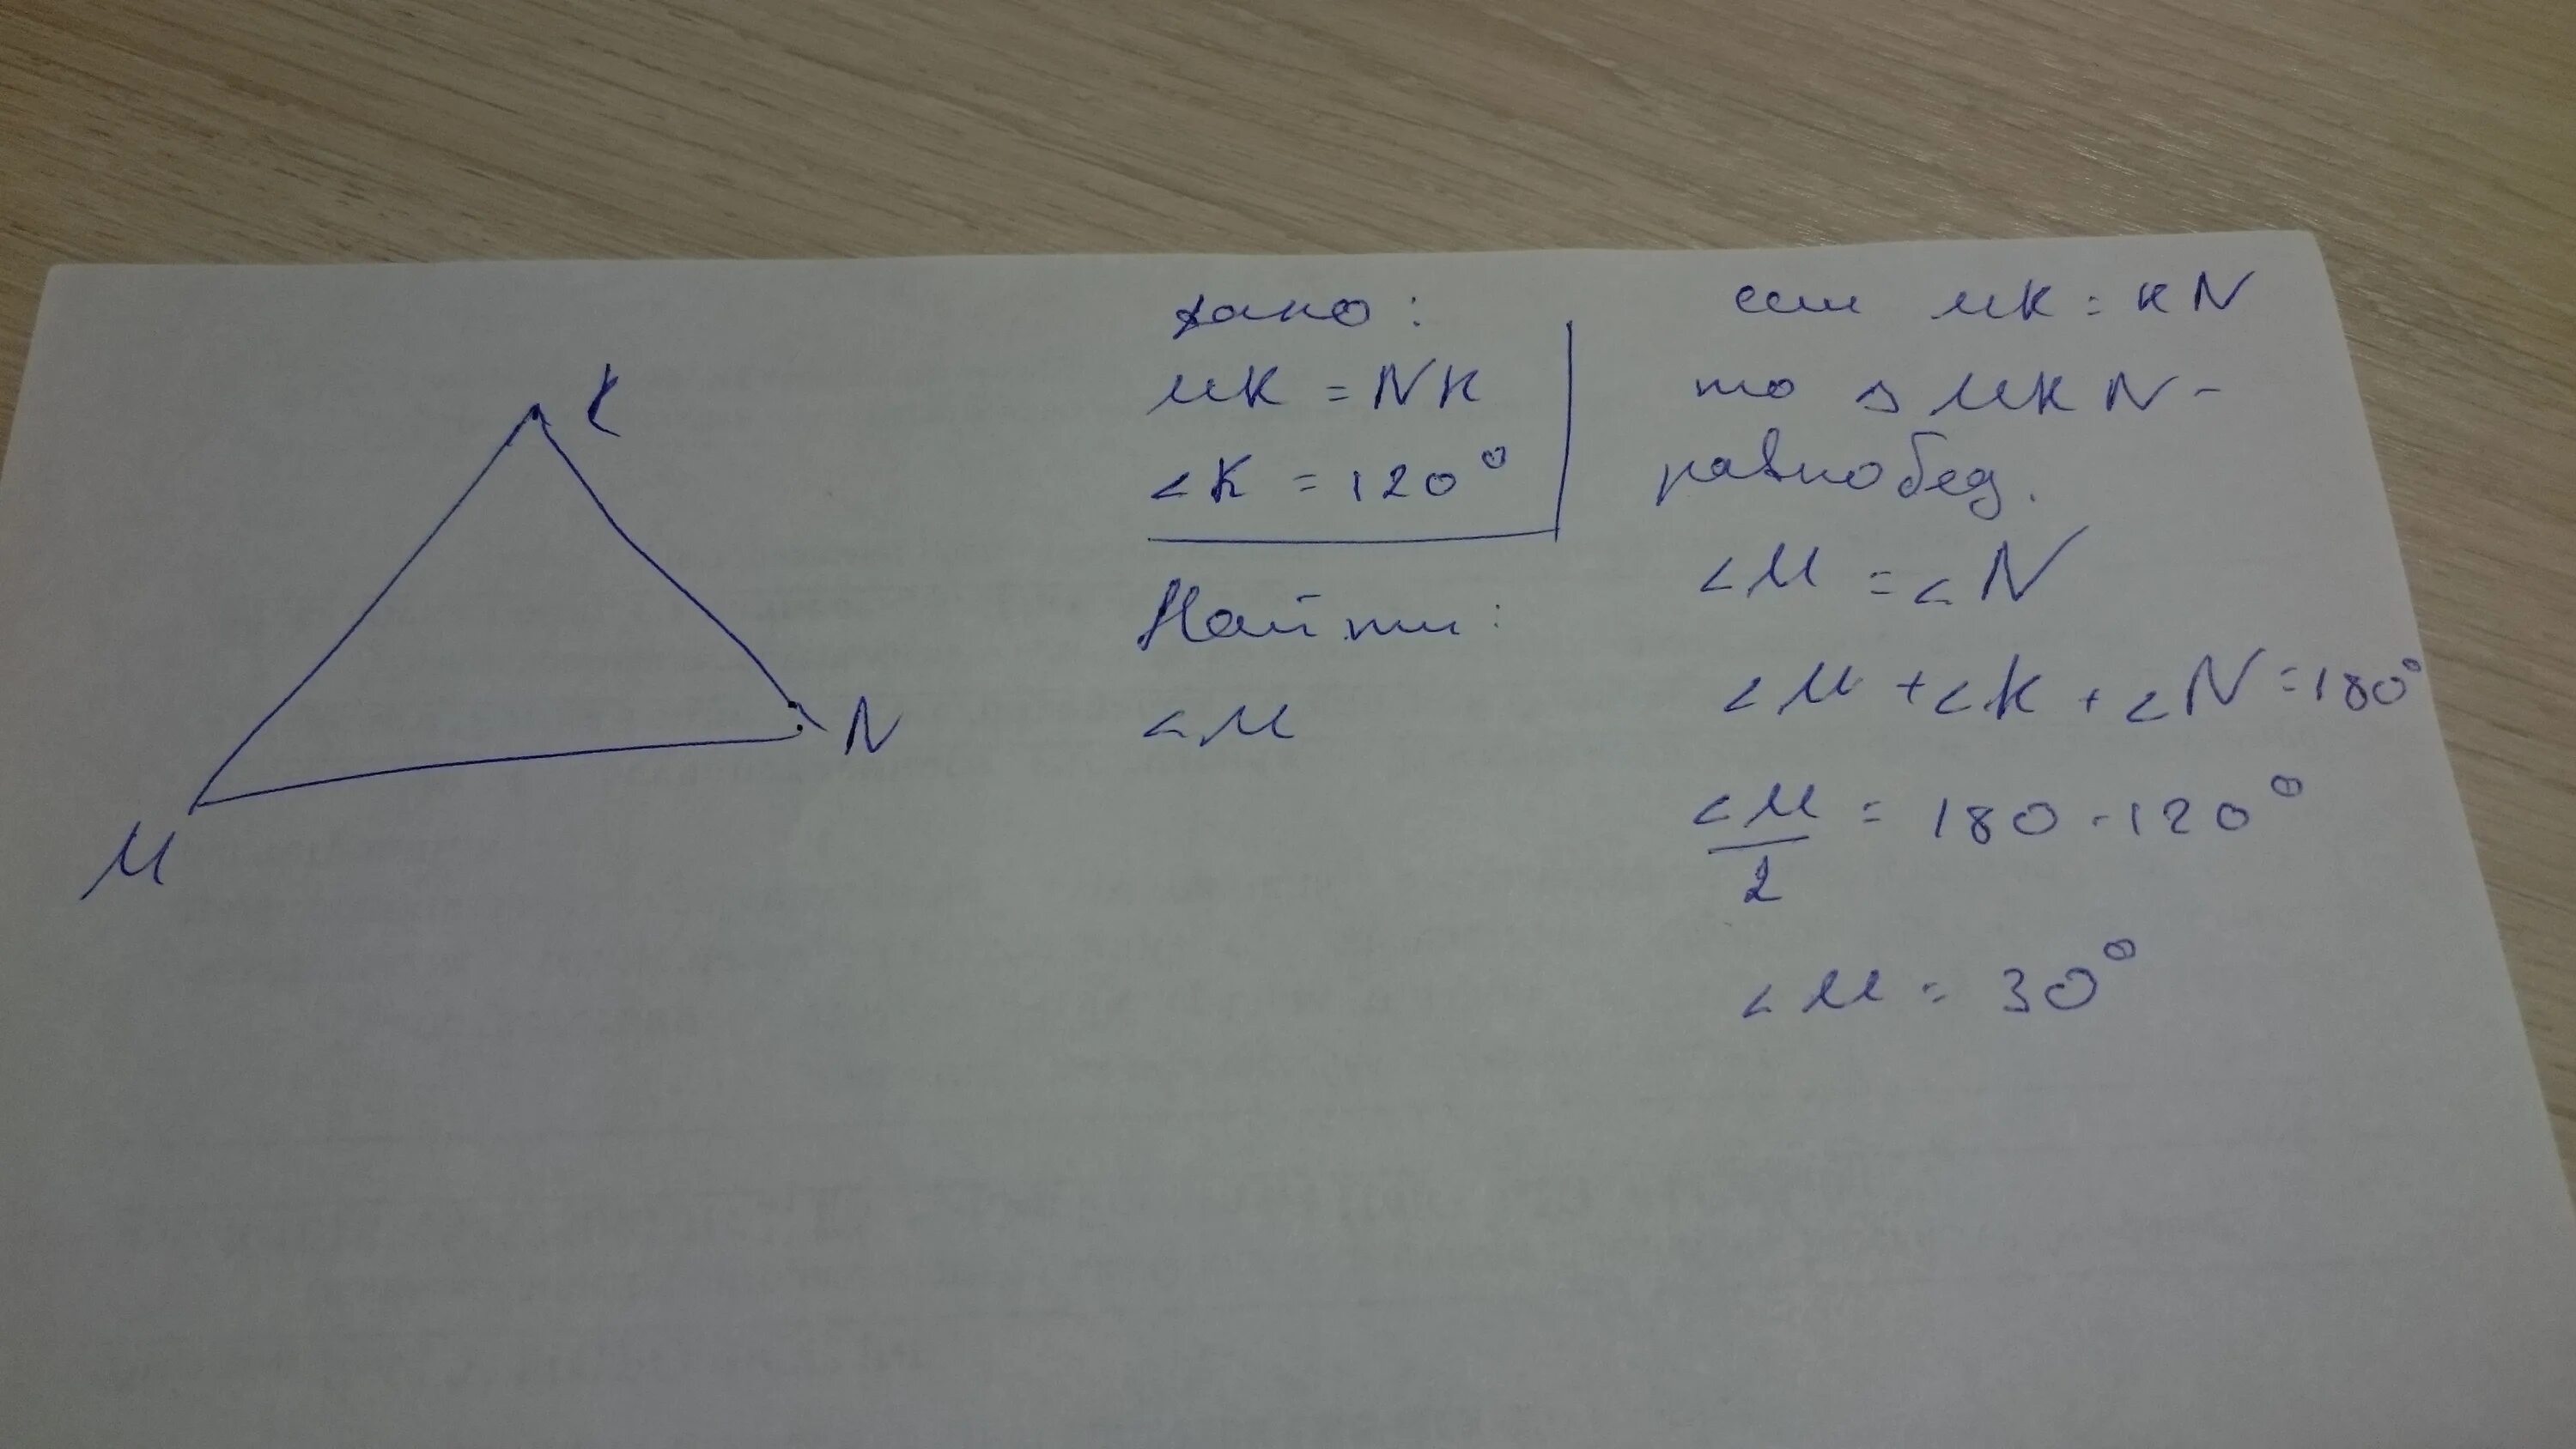 K
N
M
дано:
MK = NK
∠K = 120°
Найти:
∠M
если MK = KN
то △ MKN -
равнобед.
∠M = ∠N
∠M + ∠K + ∠N = 180°
∠M/2 = 180 - 120°
∠M = 30°